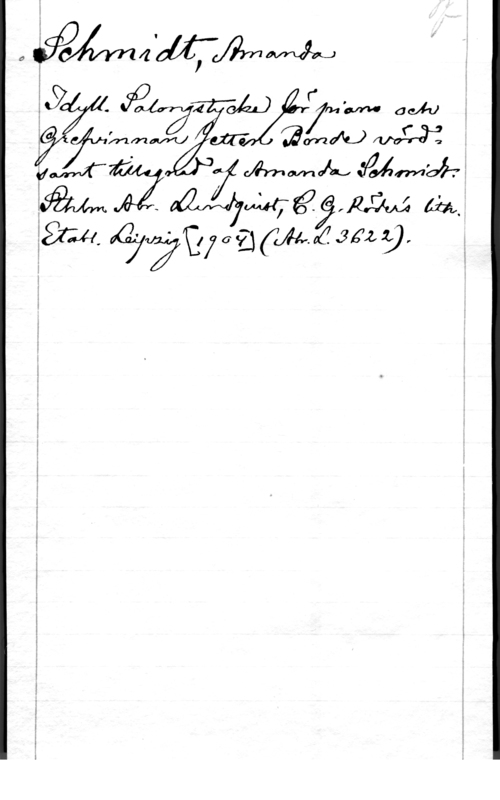 Schmidt, Amanda
Idyll. Salongstycke för piano och
Grefvinnan Jetten Bonde vörd=
samt tillegnad af Amanda Schmidt.
Sthlm. Abr. Lundquist, C. G. Röder's lith.
Etabl. Leipzig [1904] (Abr. L. 3622).